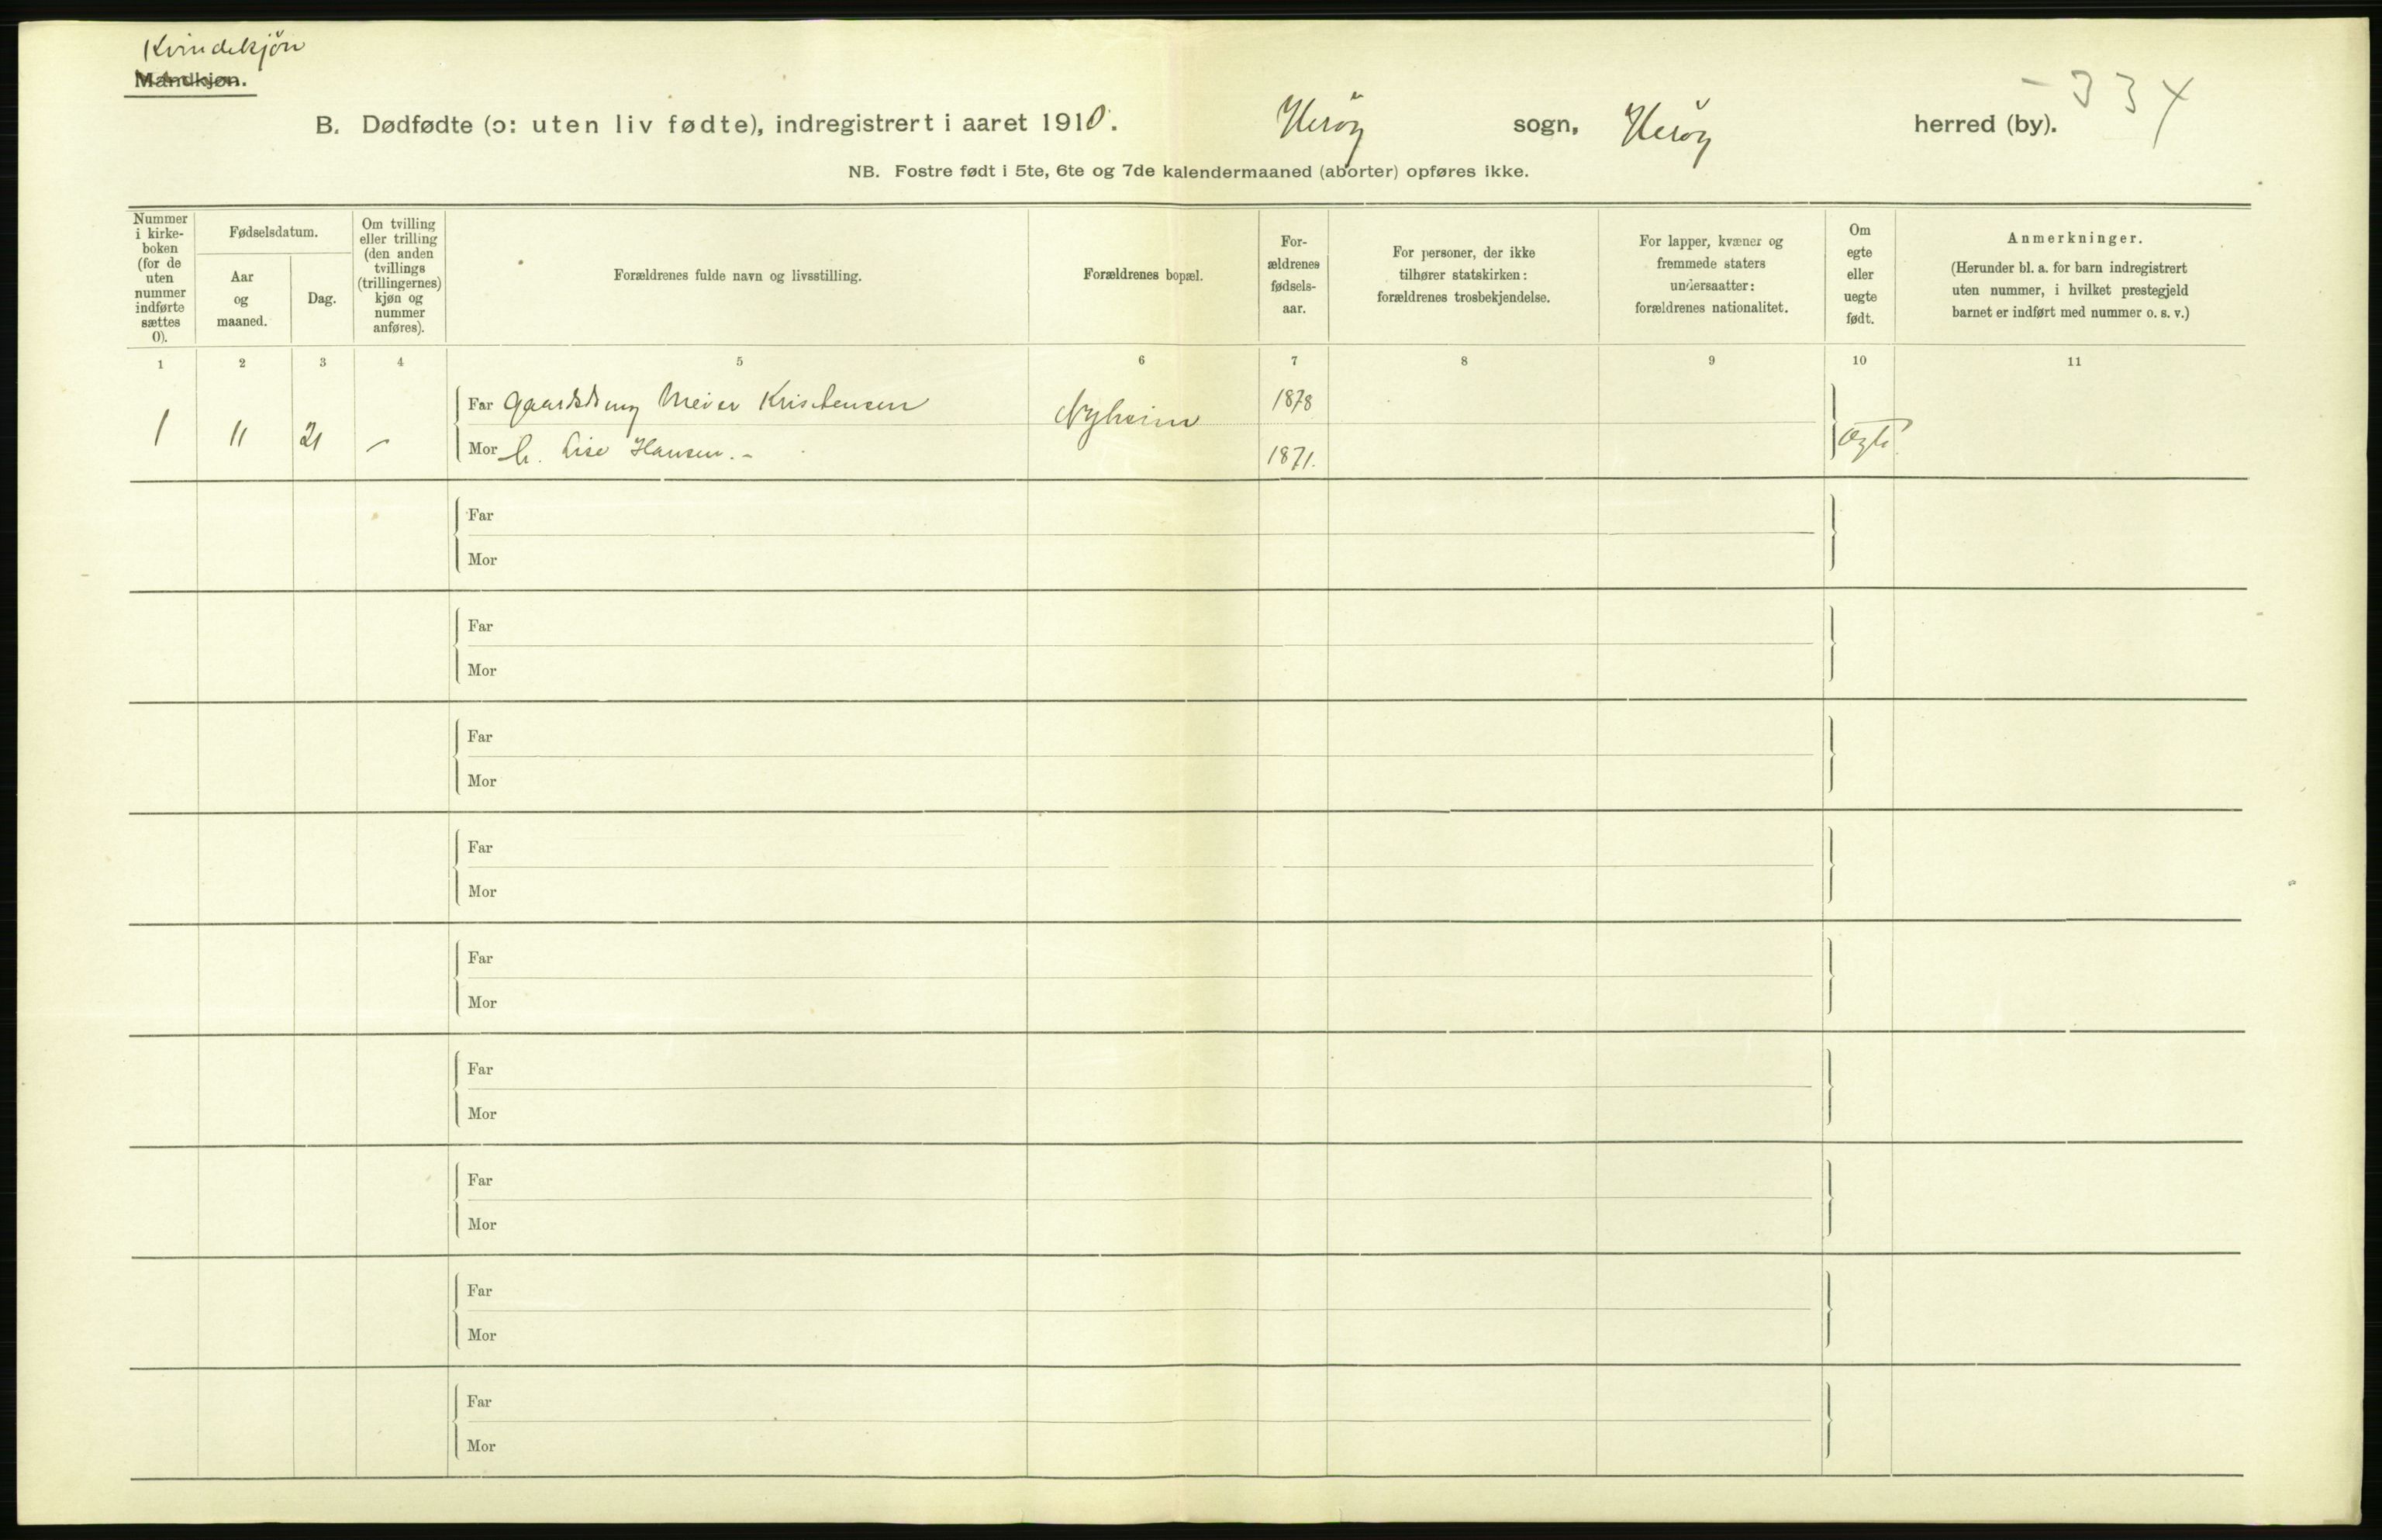 Kvindekjön
Mandkjøn.
334
B. Dødfødte (ɔ: uten liv fødte), indregistrert i aaret 1910. Herøy sogn, Herøy herred (by).
NB. Fostre født i 5te, 6te og 7de kalendermaaned (aborter) opføres ikke.
Nummer
i kirke-
boken
(for de
uten
nummer
indførte
sættes
0).
Fødselsdatum.
Aar
og
maaned.
Dag.
Om tvilling
eller trilling
(den anden
tvillings
(trillingernes)
kjøn og
nummer
anføres).
Forældrenes fulde navn og livsstilling.
Forældrenes bopæl.
For-
ældrenes
fødsels-
aar.
For personer, der ikke
tilhører statskirken:
forældrenes trosbekjendelse.
For lapper, kvæner og
fremmede staters
undersaatter:
forældrenes nationalitet.
Om
egte
eller
uegte
født.
Anmerkninger.
(Herunder bl. a. for barn indregistrert
uten nummer, i hvilket prestegjeld
barnet er indført med nummer o. s. v.)
1 2 3 4 5 6 7 8 9 10 11
Far Meier Kristensen Nyheim 1878
1 11 21 - Mor h. Lise Hansen. - 1871. Egte
Far
Mor
Far
Mor
Far
Mor
Far
Mor
Far
Mor
Far
Mor
Far
Mor
Far
Mor
Far
Mor